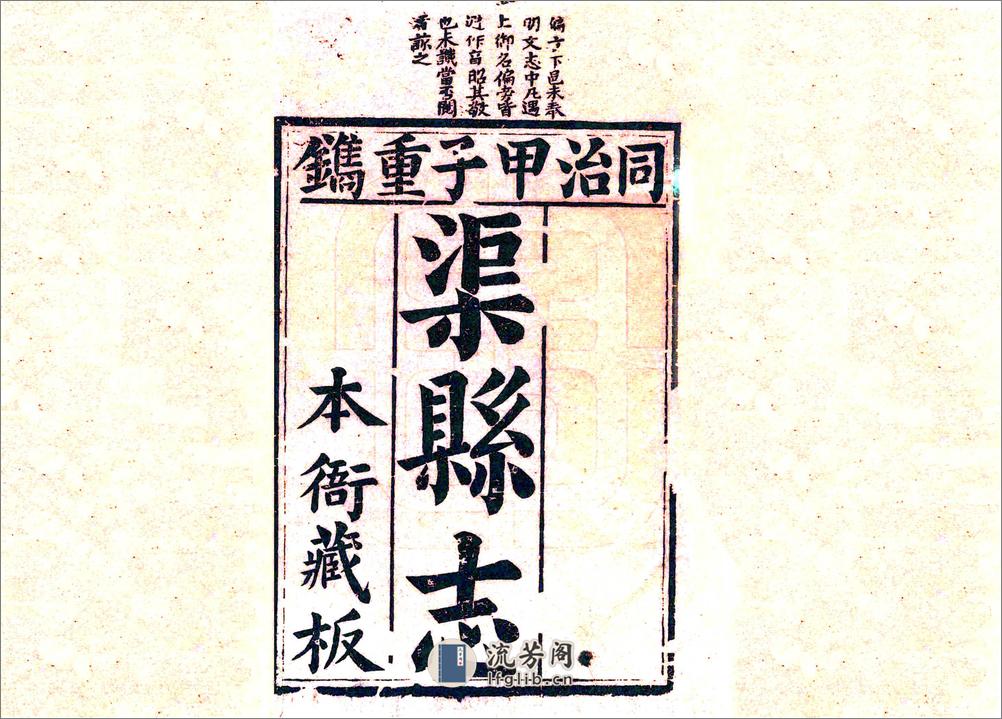 偏方下邑未奉
明文志中凡遇
上御名偏旁皆
避作昭其敬
也未識當否閱
者諒之
同治甲子重鐫
渠縣志
本衙藏板
流芳阁
lfglib.cn